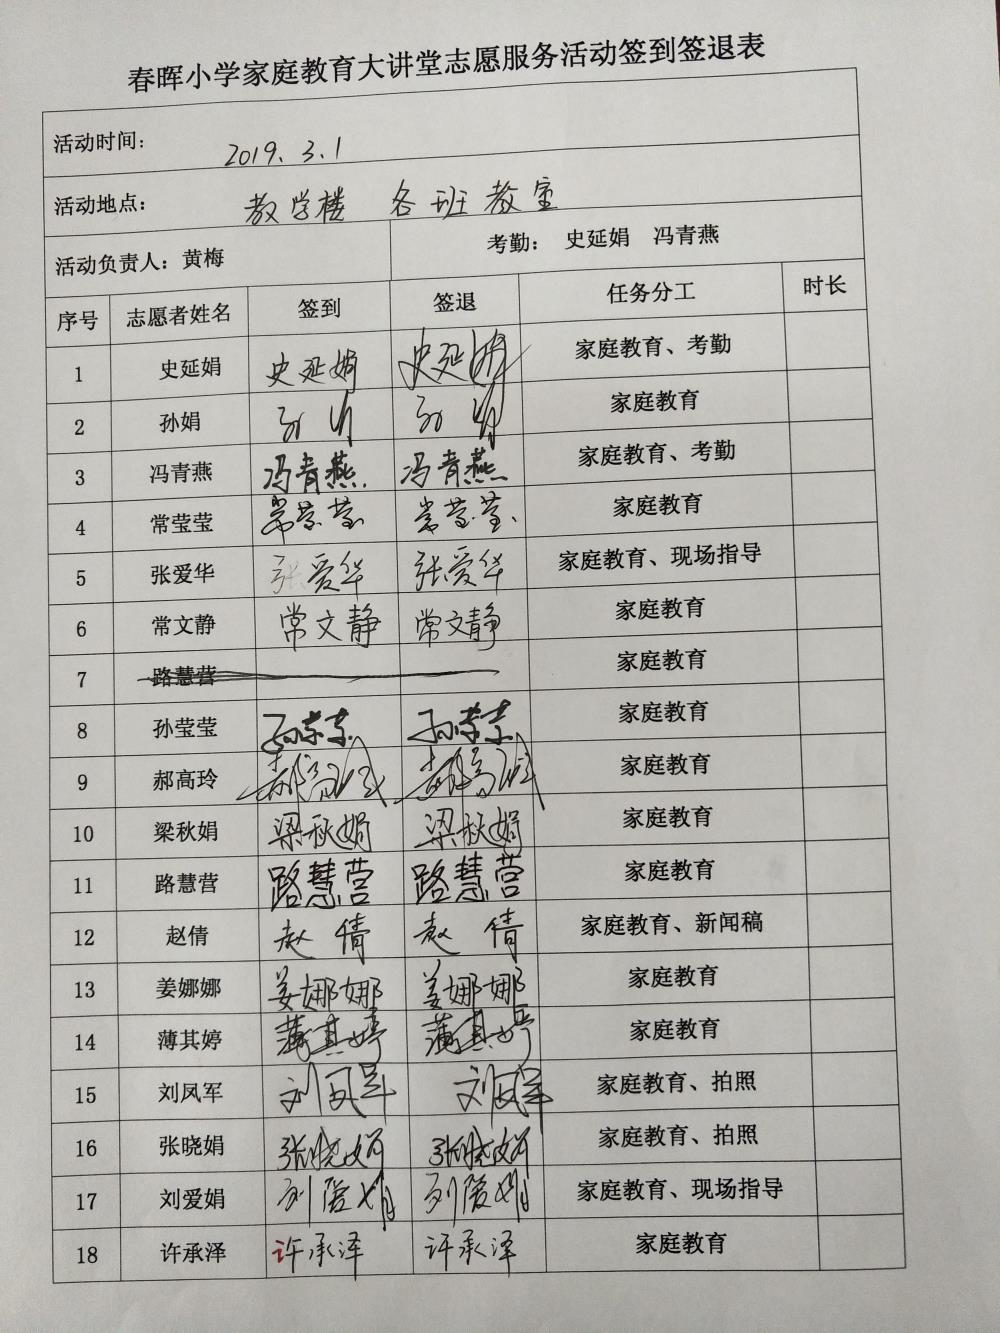 春晖小学家庭教育大讲堂志愿服务活动签到签退表
活动时间： 2019.3.1
活动地点： 教学楼 各班教室
活动负责人：黄梅 考勤： 史延娟 冯青燕
序号 志愿者姓名 签到 签退 任务分工 时长
1 史延娟 史延娟 史延娟 家庭教育、考勤
2 孙娟 孙娟 孙娟 家庭教育
3 冯青燕 冯青燕. 冯青燕 家庭教育、考勤
4 常莹莹 常莹莹 常莹莹. 家庭教育
5 张爱华 张爱华 张爱华 家庭教育、现场指导
6 常文静 常文静 常文静 家庭教育
7 路慧营 家庭教育
8 孙莹莹 孙莹莹 孙莹莹 家庭教育
9 郝高玲 郝高玲 郝高玲 家庭教育
10 梁秋娟 梁秋娟 梁秋娟 家庭教育
11 路慧营 路慧营 路慧营 家庭教育
12 赵倩 赵倩 赵倩 家庭教育、新闻稿
13 姜娜娜 姜娜娜 姜娜娜 家庭教育
14 薄其婷 薄其婷 薄其婷 家庭教育
15 刘凤军 刘凤军 刘凤军 家庭教育、拍照
16 张晓娟 张晓娟 张晓娟 家庭教育、拍照
17 刘爱娟 刘爱娟 刘爱娟 家庭教育、现场指导
18 许承泽 许承泽 许承泽 家庭教育